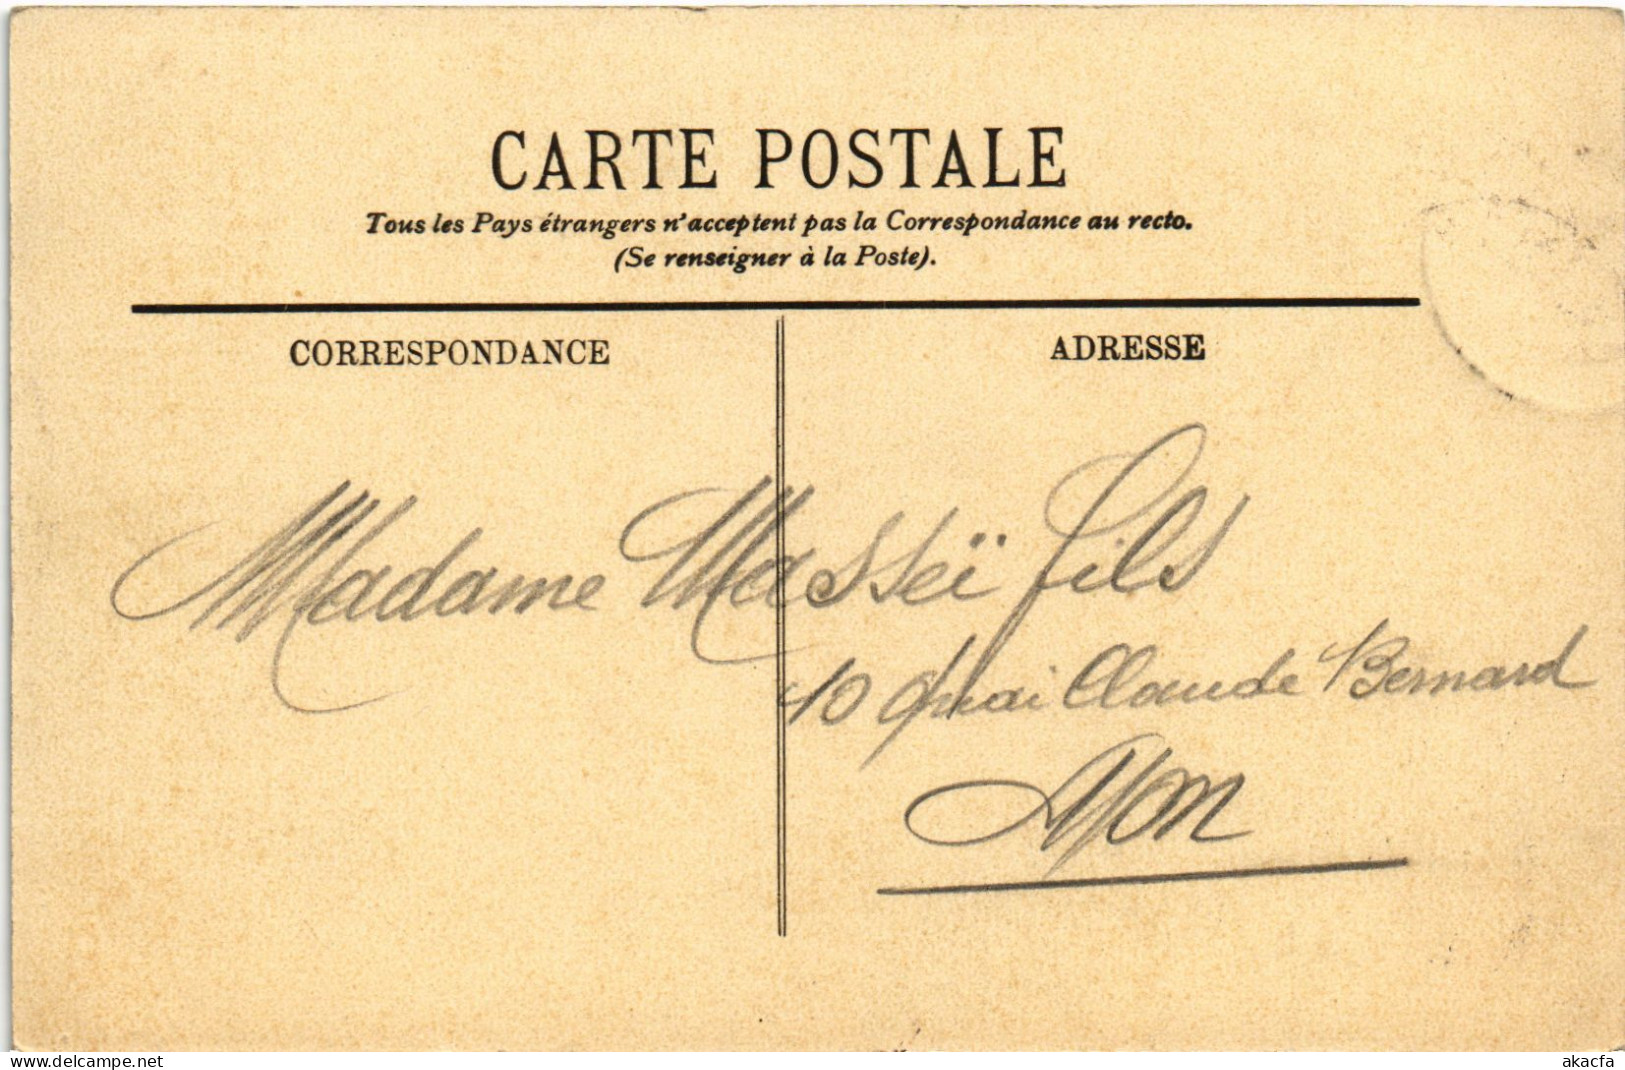 CARTE POSTALE
Tous les Pays étrangers n'acceptent pas la Correspondance au recto.
(Se renseigner à la Poste).
CORRESPONDANCE
ADRESSE
Madame Masseï fils
10 quai Claude Bernard
Lyon
www.delcampe.net
akacfa